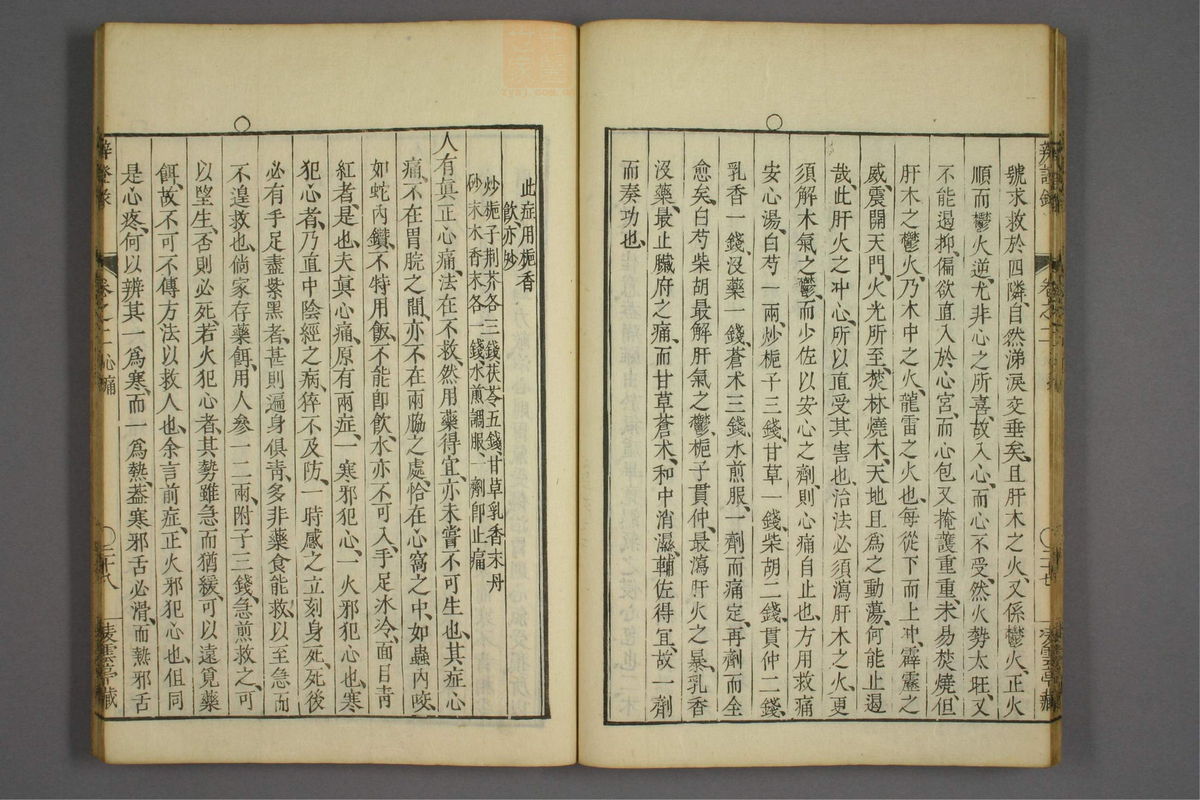 號求救於四隣、自然涕淚交垂矣、且肝木之火、又係鬱火、正火
順而鬱火逆、尤非心之所喜、故入心、而心不受、然火勢太旺、又
不能遏抑、偏欲直入於心宮、而心包又掩護重重、未易焚燒、但
肝木之鬱火、乃木中之火、龍雷之火也、每從下而上冲、霹靂之
威、震開天門、火光所至、焚林燒木、天地且爲之動蕩、何能止遏
哉、此肝火之冲心、所以直受其害也、治法必須瀉肝木之火、更
須解木氣之鬱、而少佐以安心之劑、則心痛自止也、方用救痛
安心湯、白芍一兩、炒梔子三錢、甘草一錢、柴胡二錢、貫仲二錢、
乳香一錢、沒藥一錢、蒼术三錢、水煎服、一劑而痛定、再劑而全
愈矣、白芍柴胡最解肝氣之鬱、梔子貫仲、最瀉肝火之暴、乳香
沒藥、最止臟府之痛、而甘草蒼术、和中消濕、輔佐得宜、故一劑
而奏功也、
此症用梔香
飲亦妙
炒梔子荆芥各三錢茯苓五錢甘草乳香末丹
砂末木香末各一錢水煎調服、一劑卽止痛
人有眞正心痛、法在不救、然用藥得宜、亦未嘗不可生也、其症心
痛、不在胃脘之間、亦不在兩脇之處、恰在心窩之中、如蟲內咬、
如蛇內鑽、不特用飯、不能卽飲水亦不可入、手足冰冷、面目青
紅者、是也、夫眞心痛、原有兩症、一寒邪犯心、一火邪犯心也、寒
犯心者、乃直中陰經之病、猝不及防、一時感之、立刻身死、死後
必有手足盡紫黑者、甚則遍身俱青、多非藥食能救、以至急而
不遑救也、倘家存藥餌、用人參一二兩、附子三錢、急煎救之、可
以望生、否則必死、若火犯心者、其勢雖急而猶緩、可以遠覓藥
餌、故不可不傳方法以救人也、余言前症、正火邪犯心也、但同
是心疼、何以辨其一爲寒、而一爲熱、葢寒邪舌必滑、而熱邪舌
辨證錄
卷之二 心痛
三十八
凌雲亭藏